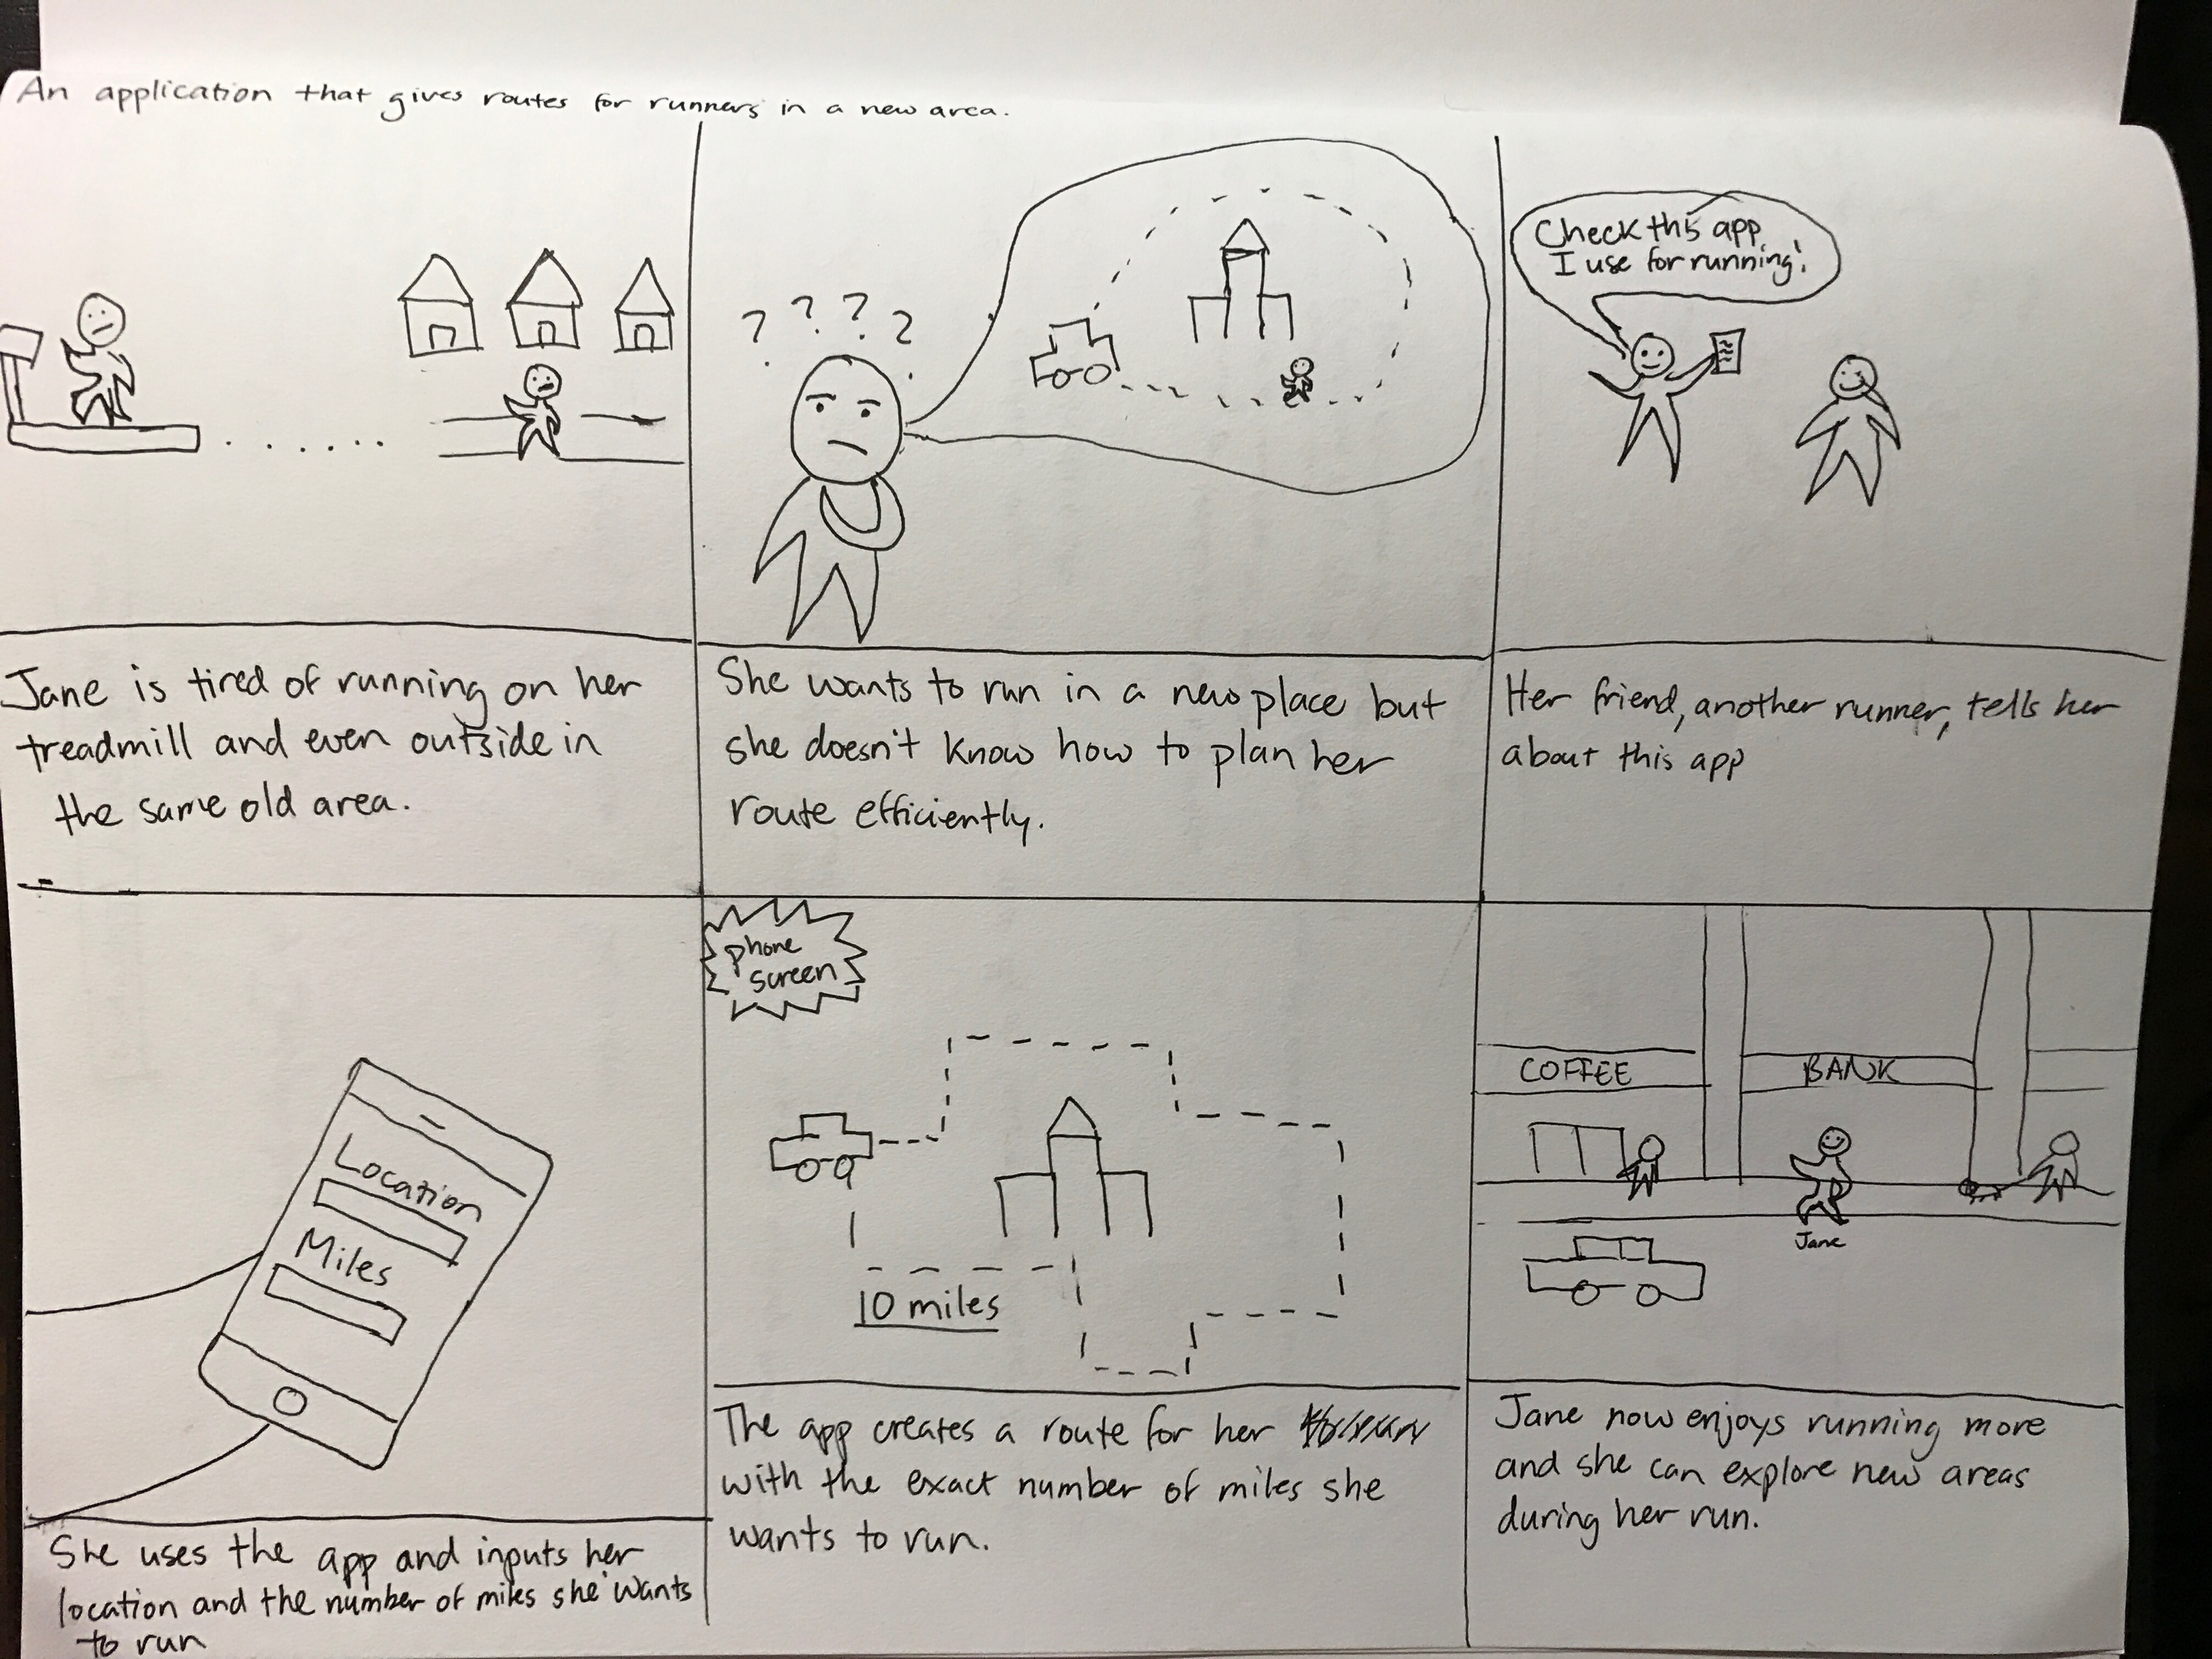 An application that gives routes for runners in a new area.
Check this app
I use for running!
? ? ? ?
Jane is tired of running on her
treadmill and even outside in
the same old area.
She wants to run in a new place but
she doesn't know how to plan her
route efficiently.
Her friend, another runner, tells her
about this app
Location
Miles
She uses the app and inputs her
location and the number of miles she wants
to run
phone
screen
10 miles
The app creates a route for her
with the exact number of miles she
wants to run.
COFFEE
BANK
Jane
Jane now enjoys running more
and she can explore new areas
during her run.